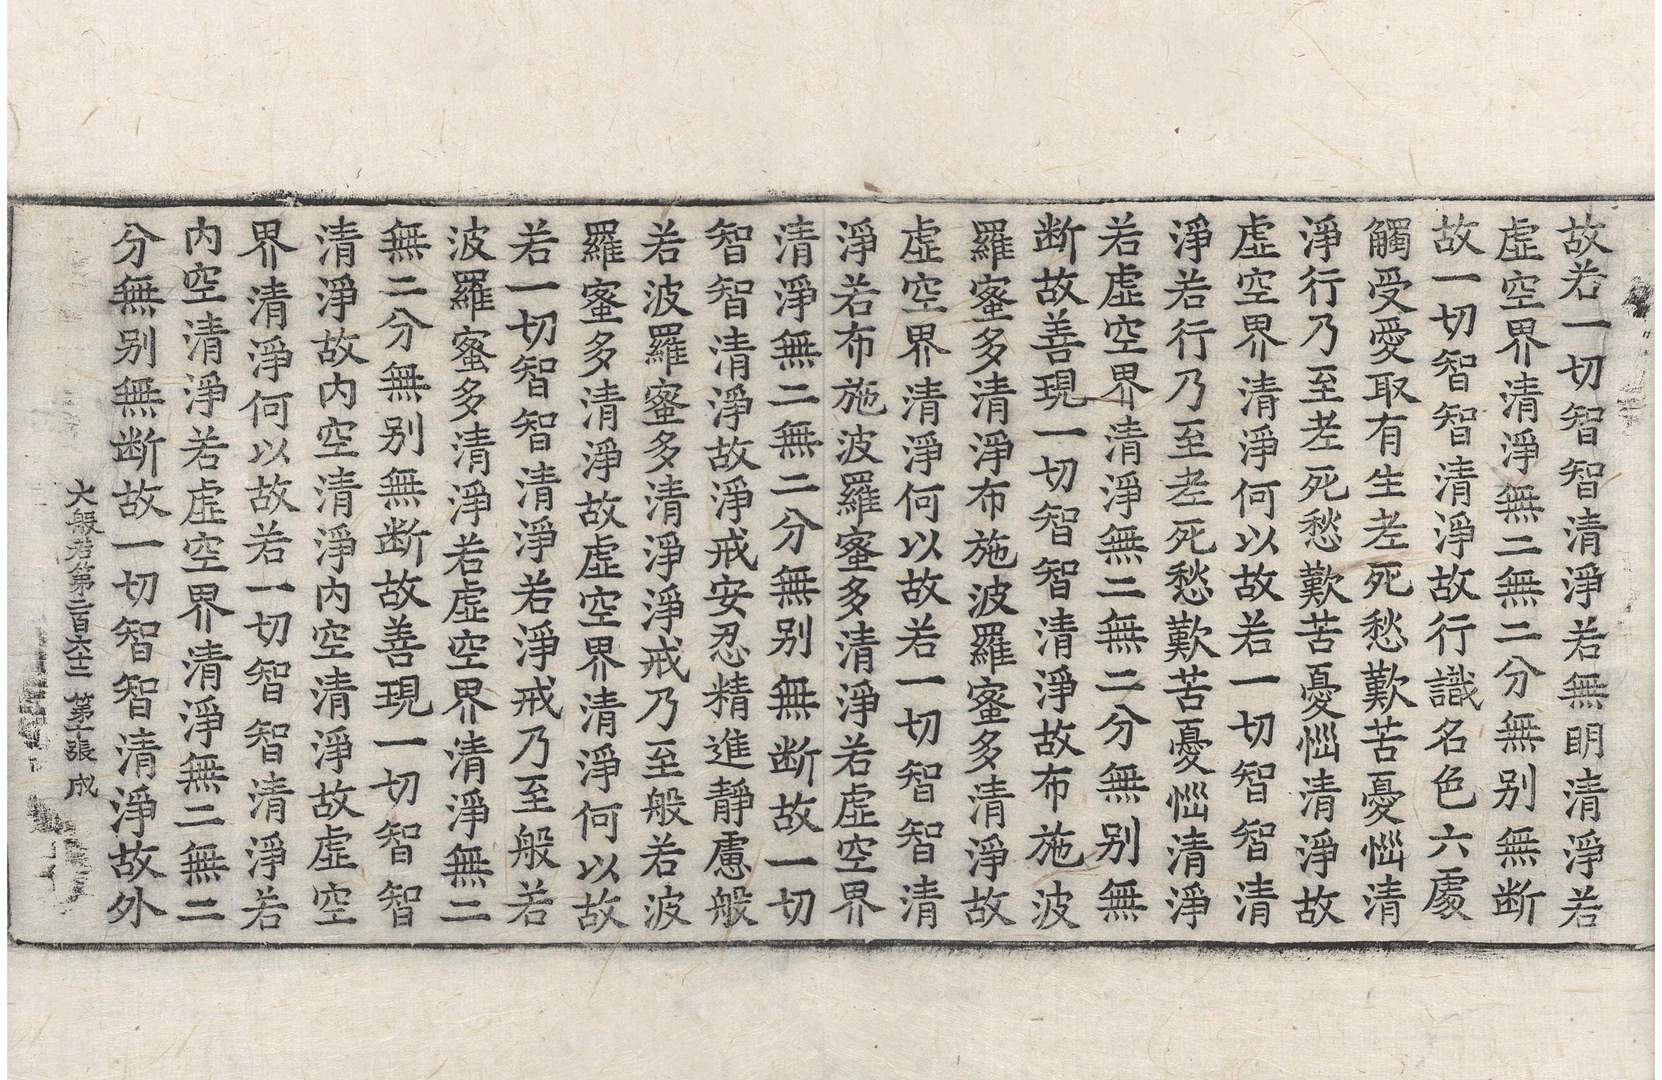 故若一切智智清淨若無明清淨若
虛空界清淨無二無二分無别無断
故一切智智清淨故行識名色六處
觸受愛取有生老死愁歎苦憂惱清
淨行乃至老死愁歎苦憂惱清淨故
虛空界清淨何以故若一切智智清
淨若行乃至老死愁歎苦憂惱清淨
若虛空界清淨無二無二分無别無
断故善現一切智智清淨故布施波
羅蜜多清淨布施波羅蜜多清淨故
虛空界清淨何以故若一切智智清
淨若布施波羅蜜多清淨若虛空界
清淨無二無二分無别無断故一切
智智清淨故淨戒安忍精進靜慮般
若波羅蜜多清淨淨戒乃至般若波
羅蜜多清淨故虛空界清淨何以故
若一切智智清淨若淨戒乃至般若
波羅蜜多清淨若虛空界清淨無二
無二分無别無断故善現一切智智
清淨故内空清淨内空清淨故虛空
界清淨何以故若一切智智清淨若
内空清淨若虛空界清淨無二無二
分無别無断故一切智智清淨故外
大般若第二百六十二 第十張 成